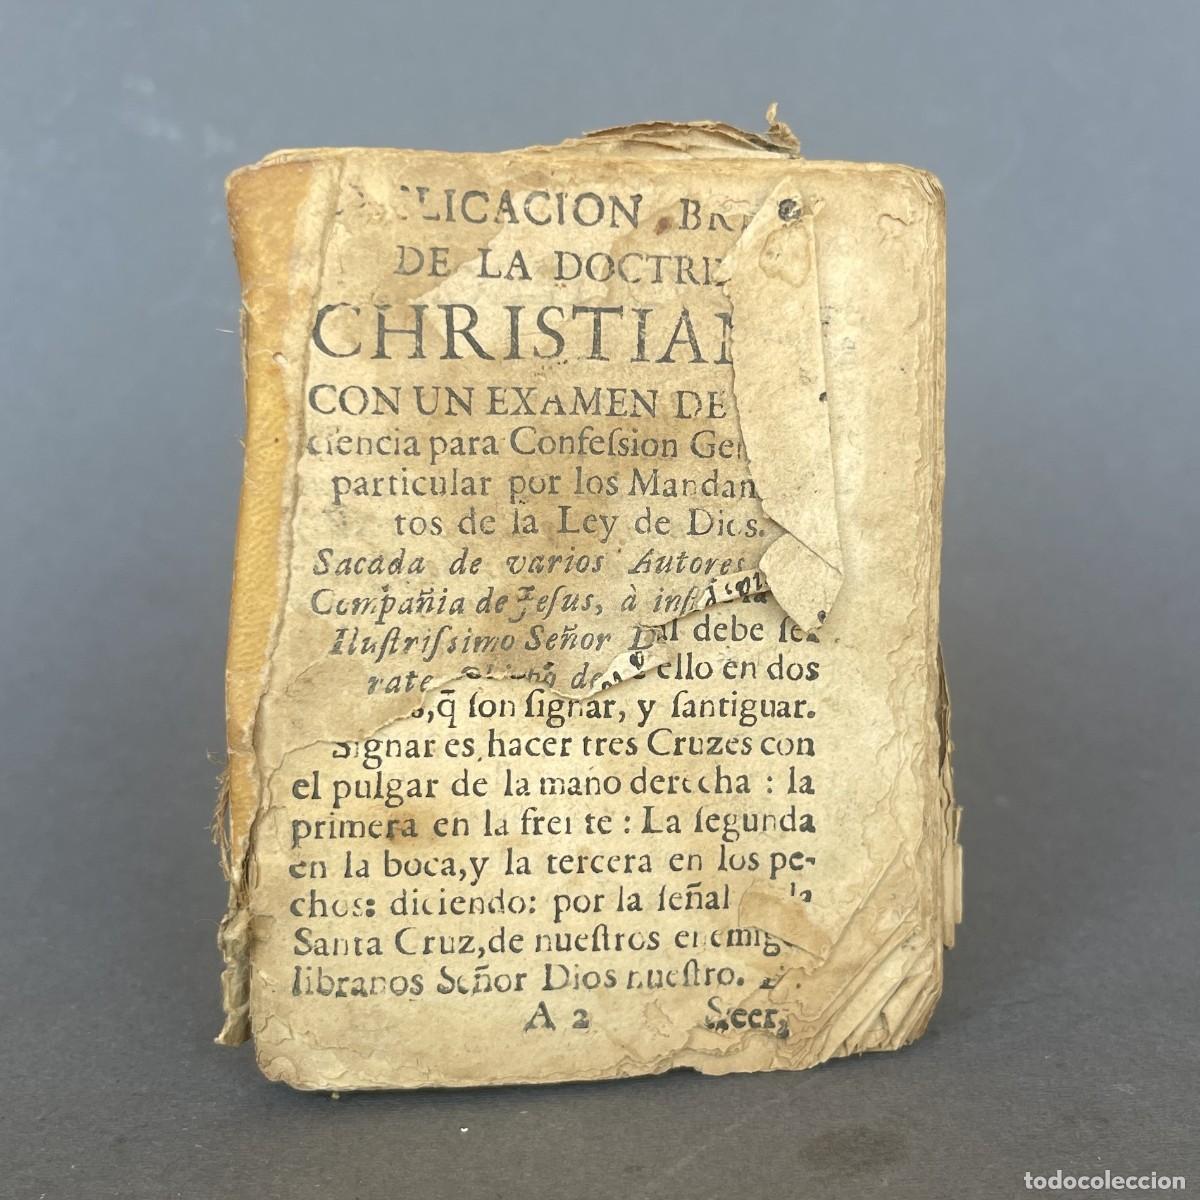 BR
DE LA DOCTRI
CHRISTIAN
CON UN EXAMEN DE
ciencia para Confeſsion Ge
particular por los Mandam
tos de la Ley de Dios.
Sacada de varios Autores
Compañia de Jeſus, à inſt
Iluſtriſsimo Señor D al debe ſer
rate de ello en dos
q̃ ſon ſignar, y ſantiguar.
Signar es hacer tres Cruzes con
el pulgar de la mano derecha : la
primera en la frente : La ſegunda
en la boca, y la tercera en los pe-
chos: diciendo: por la ſeñal
Santa Cruz, de nueſtros enemigos
libranos Señor Dios nueſtro.
A 2
todocoleccion